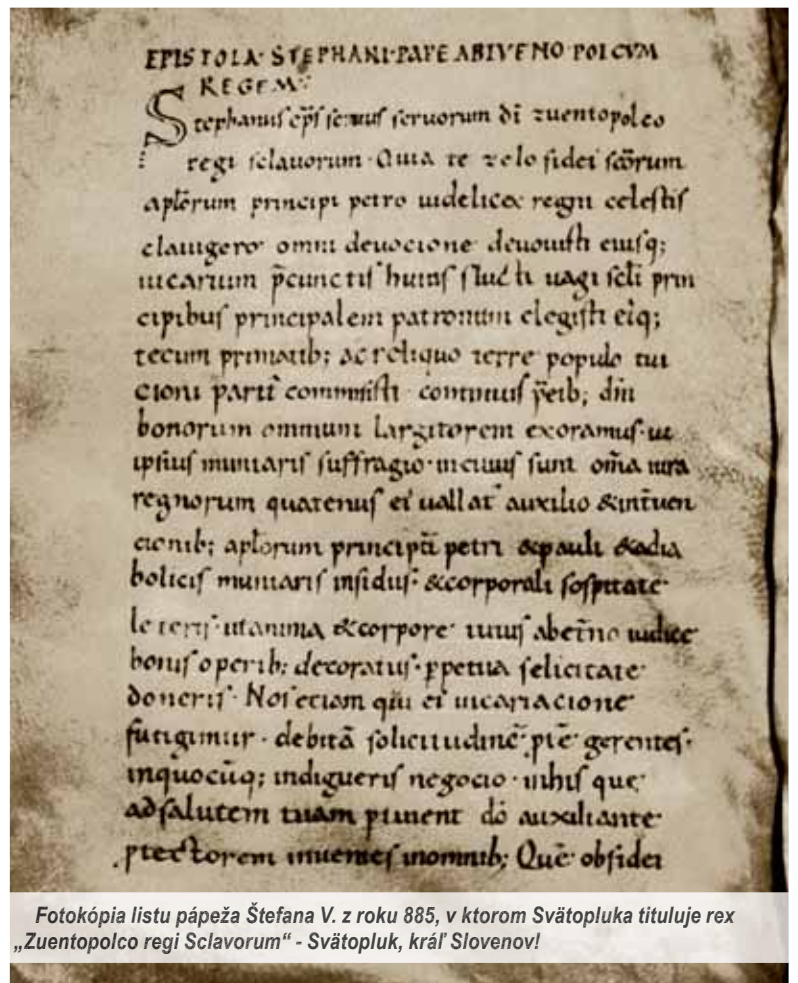 EPISTOLA· STEPHANI· PAPE ADZVENTOPOLCVM
REGEM
Stephanus ep̄s seruus seruorum dī zuentopolco
regi sclauorum· Quia te zelo fidei sc̄orum
apl̄orum principi petro uidelicet regni celestis
clauigero omni deuocione deuouisti eiusq;
uicarium p̄cunctis huius fluc ti uagi scl̄i prin
cipibus principalem patronum elegisti eiq;
tecum primatib; ac reliquo terre populo tui
cioni commisisti· continuis
bonorum omnium largitorem exoramus· ut
ipsius muniaris suffragio· incuius sunt om̄a iura
regnorum quatenus ei uallat auxilio &int̄uen
cionib; apl̄orum principū petri &pauli &adia
bolicis muniaris insidiis· &corporali sospitate
leteris· utanima &corpore tutus abet̄no iudice
bonis operib; decoratus· ꝑpetua felicitate
doneris· Nos etiam qui ei uicariacione
fungimur· debitā solicitudinē· gerentes·
inquocūq; indigueris negocio· inhis que
adsalutem tuam ꝑtinent dō auxiliante
ptectorem inuenies inomnib; Quē obfidei
Fotokópia listu pápeža Štefana V. z roku 885, v ktorom Svätopluka tituluje rex
„Zuentopolco regi Sclavorum“ - Svätopluk, kráľ Slovenov!